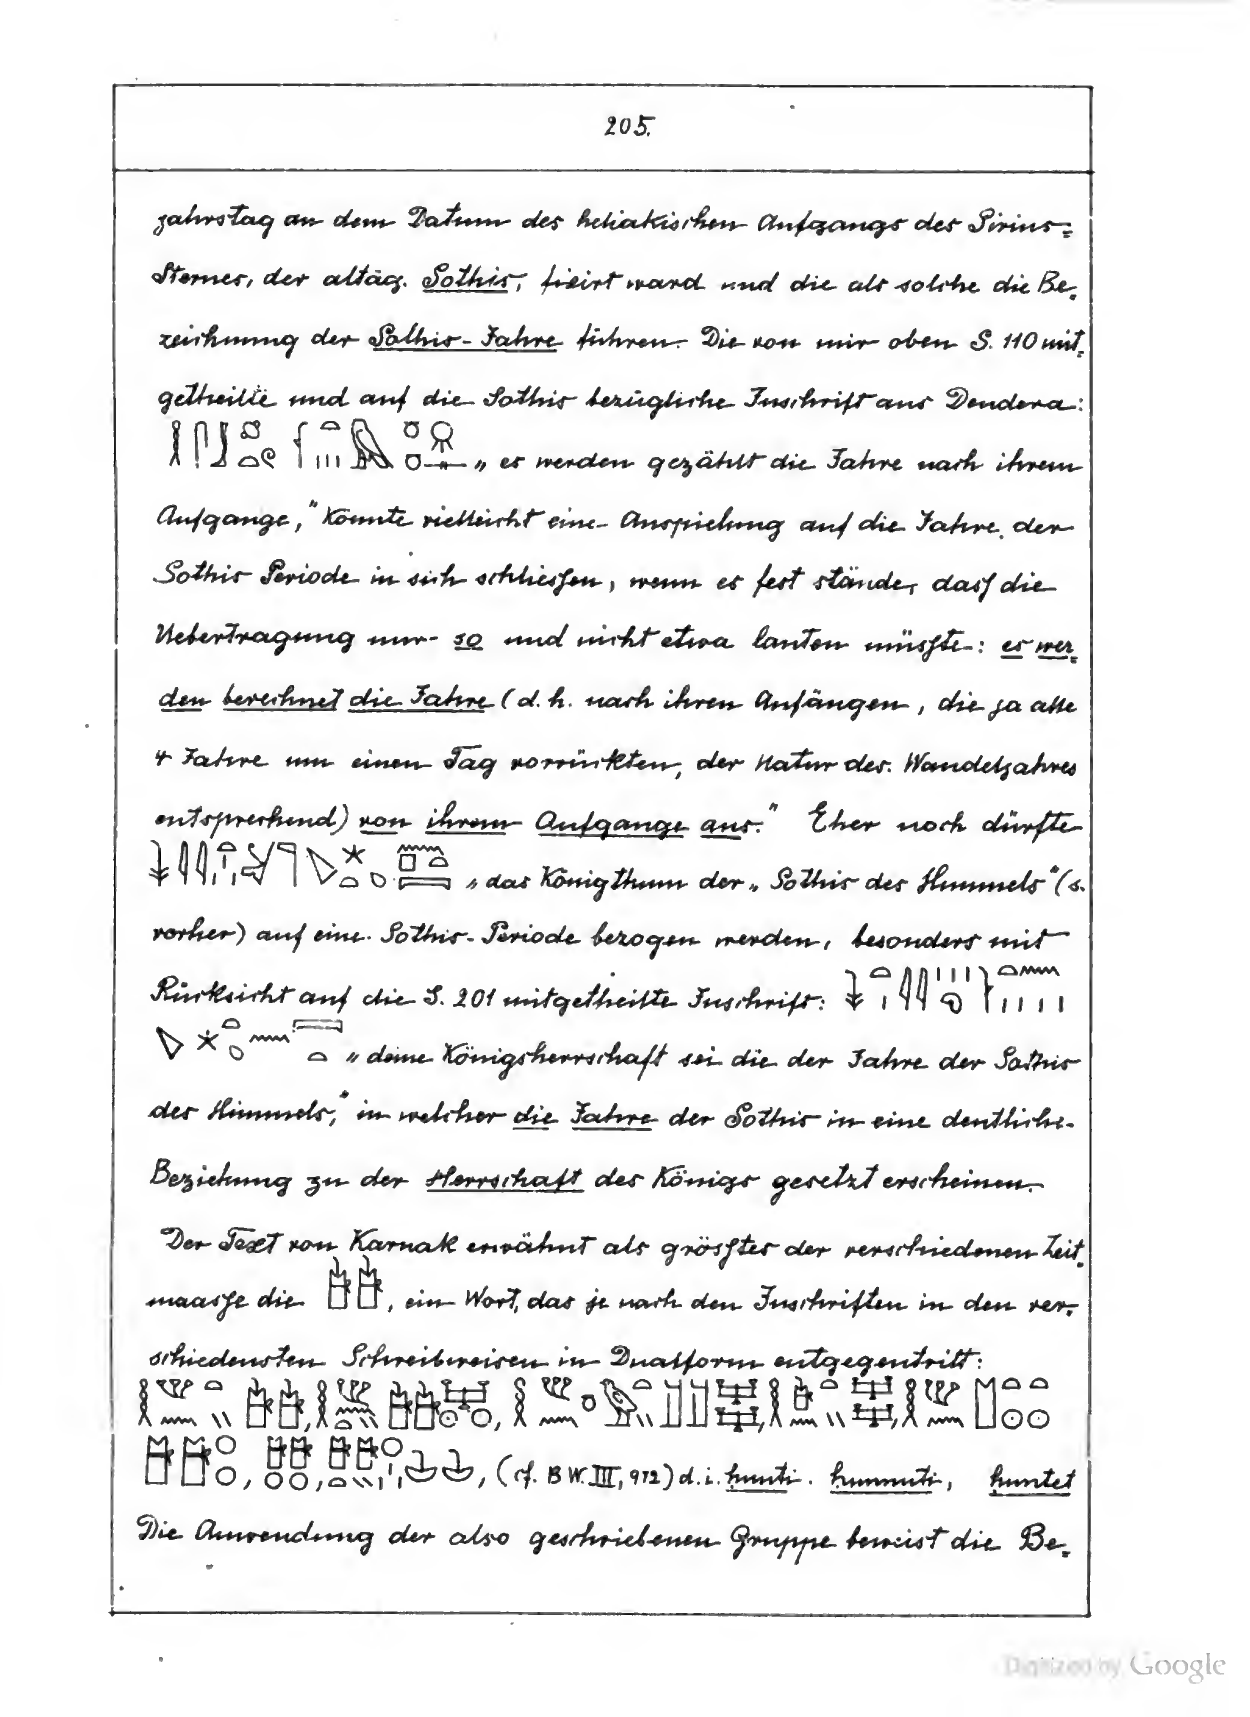 205.
jahrstag an dem Datum des heliakischen Aufgangs des Sirius=
Sternes, der altäg. Sothis, fixirt ward und die als solche die Be=
zeichnung der Sothis-Jahre führen. Die von mir oben S. 110 mit=
getheilte und auf die Sothis bezügliche Inschrift aus Dendera:
„es werden gezählt die Jahre nach ihrem
Aufgange,“ könnte vielleicht eine Anspielung auf die Jahre der
Sothis Periode in sich schliessen, wenn es fest stände, dass die
Uebertragung nur so und nicht etwa lauten müsste: es wer=
den berechnet die Jahre (d. h. nach ihren Anfängen, die ja alle
4 Jahre um einen Tag vorrückten, der Natur des Wandeljahres
entsprechend) von ihrem Aufgange aus.“ Eher noch dürfte
„das Königthum der „Sothis des Himmels“ (s.
vorher) auf eine Sothis-Periode bezogen werden, besonders mit
Rücksicht auf die S. 201 mitgetheilte Inschrift:
„deine Königsherrschaft sei die der Jahre der Sothis
des Himmels,“ in welcher die Jahre der Sothis in eine deutliche
Beziehung zu der Herrschaft des Königs gesetzt erscheinen.
Der Text von Karnak erwähnt als grösstes der verschiedenen Zeit=
maasse die , ein Wort, das je nach den Inschriften in den ver=
schiedensten Schreibweisen in Dualform entgegentritt:
(cf. B W. III, 972) d. i. ḥunti. ḥunnuti, ḥuntet
Die Anwendung der also geschriebenen Gruppe beweist die Be=
Digitized by Google